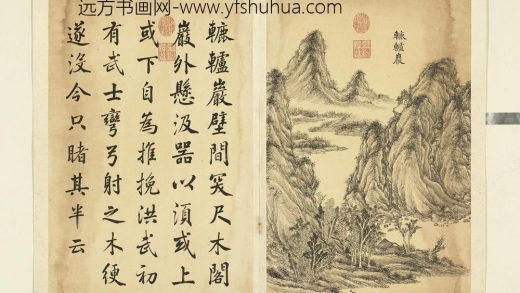 远方书画网www.yfshuhua.com
轆轤巖
轆轤巖壁間突尺木閣
巖外懸汲器以湏或上
或下自為推挽洪武初
有武士彎弓射之木綆
遂沒今只睹其半云